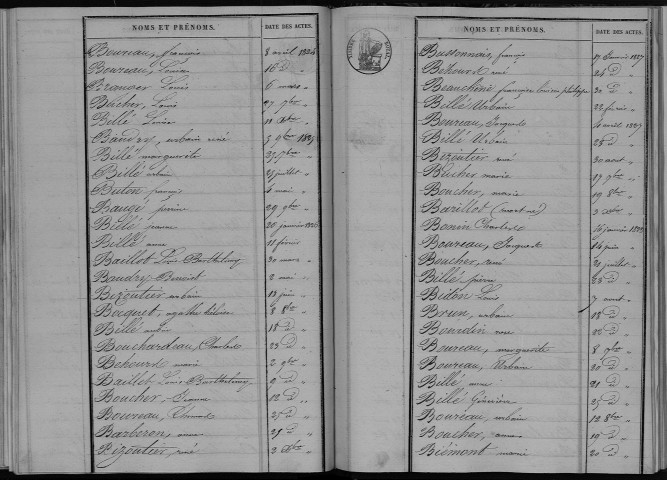 NOMS ET PRÉNOMS. DATE DES ACTES.
Boureau, françois 8 avril 1824
Boureau, Louise 16 d° "
Branger Louis 6 mars "
Bucher, Louis 27 7bre "
Billé Louise 11 "
Baudry, urbain rené 3 9bre 1825
Billé marguerite
Billé urbain 25 juillet "
Buton françois 4 mai "
Baugé, perrine 29 9bre "
Billé, jeanne 20 janvier
Billé, anne 11 février
Baillot Louis Barthélemy 30 mars "
Baudry Benoist 2 mai "
Bizoutier urbain 13 juin "
Boguet, 8 8bre "
Billé 18 d "
Bouchardeau, Charles 23 d "
Behourt marie 2 9bre "
Baillot Louis Barthélemy 9 d "
Boucher, Jeanne 12 d "
Boureau, 25 d "
Barberon, anne 29 d "
Bizoutier, rené 2 Xbre "
NOMS ET PRÉNOMS. DATE DES ACTES.
Bussonnais, françois 17 Janvier 1827
Behourt rené 24 d
Beauchêne, françoise louise philippe 30 d "
Billé Urbain 22 février "
Boureau, Jacques 4 avril 1827
Billé Urbain 28 d "
Bizoutier rené 30 aout "
Bucher marie 17 7bre "
Boucher, marie 19 8bre "
Barillot (mort né) 3 Xbre "
Bonin Charles 16 janvier
Boureau, Jacques 14 juin "
Boucher, rené 21 juillet "
Billé pierre 28 d "
Buton Louis 7 aout "
Brun, urbain 18 d "
Bourdin rose 22 d "
Boureau, marguerite 8 9bre "
Boureau, Urbain 20 d "
Billé, anne 21 d "
Billé Géneviève 25 d "
Boureau, urbain 12 8bre "
Boucher, anne 19 d "
Biémont marie 20 d "